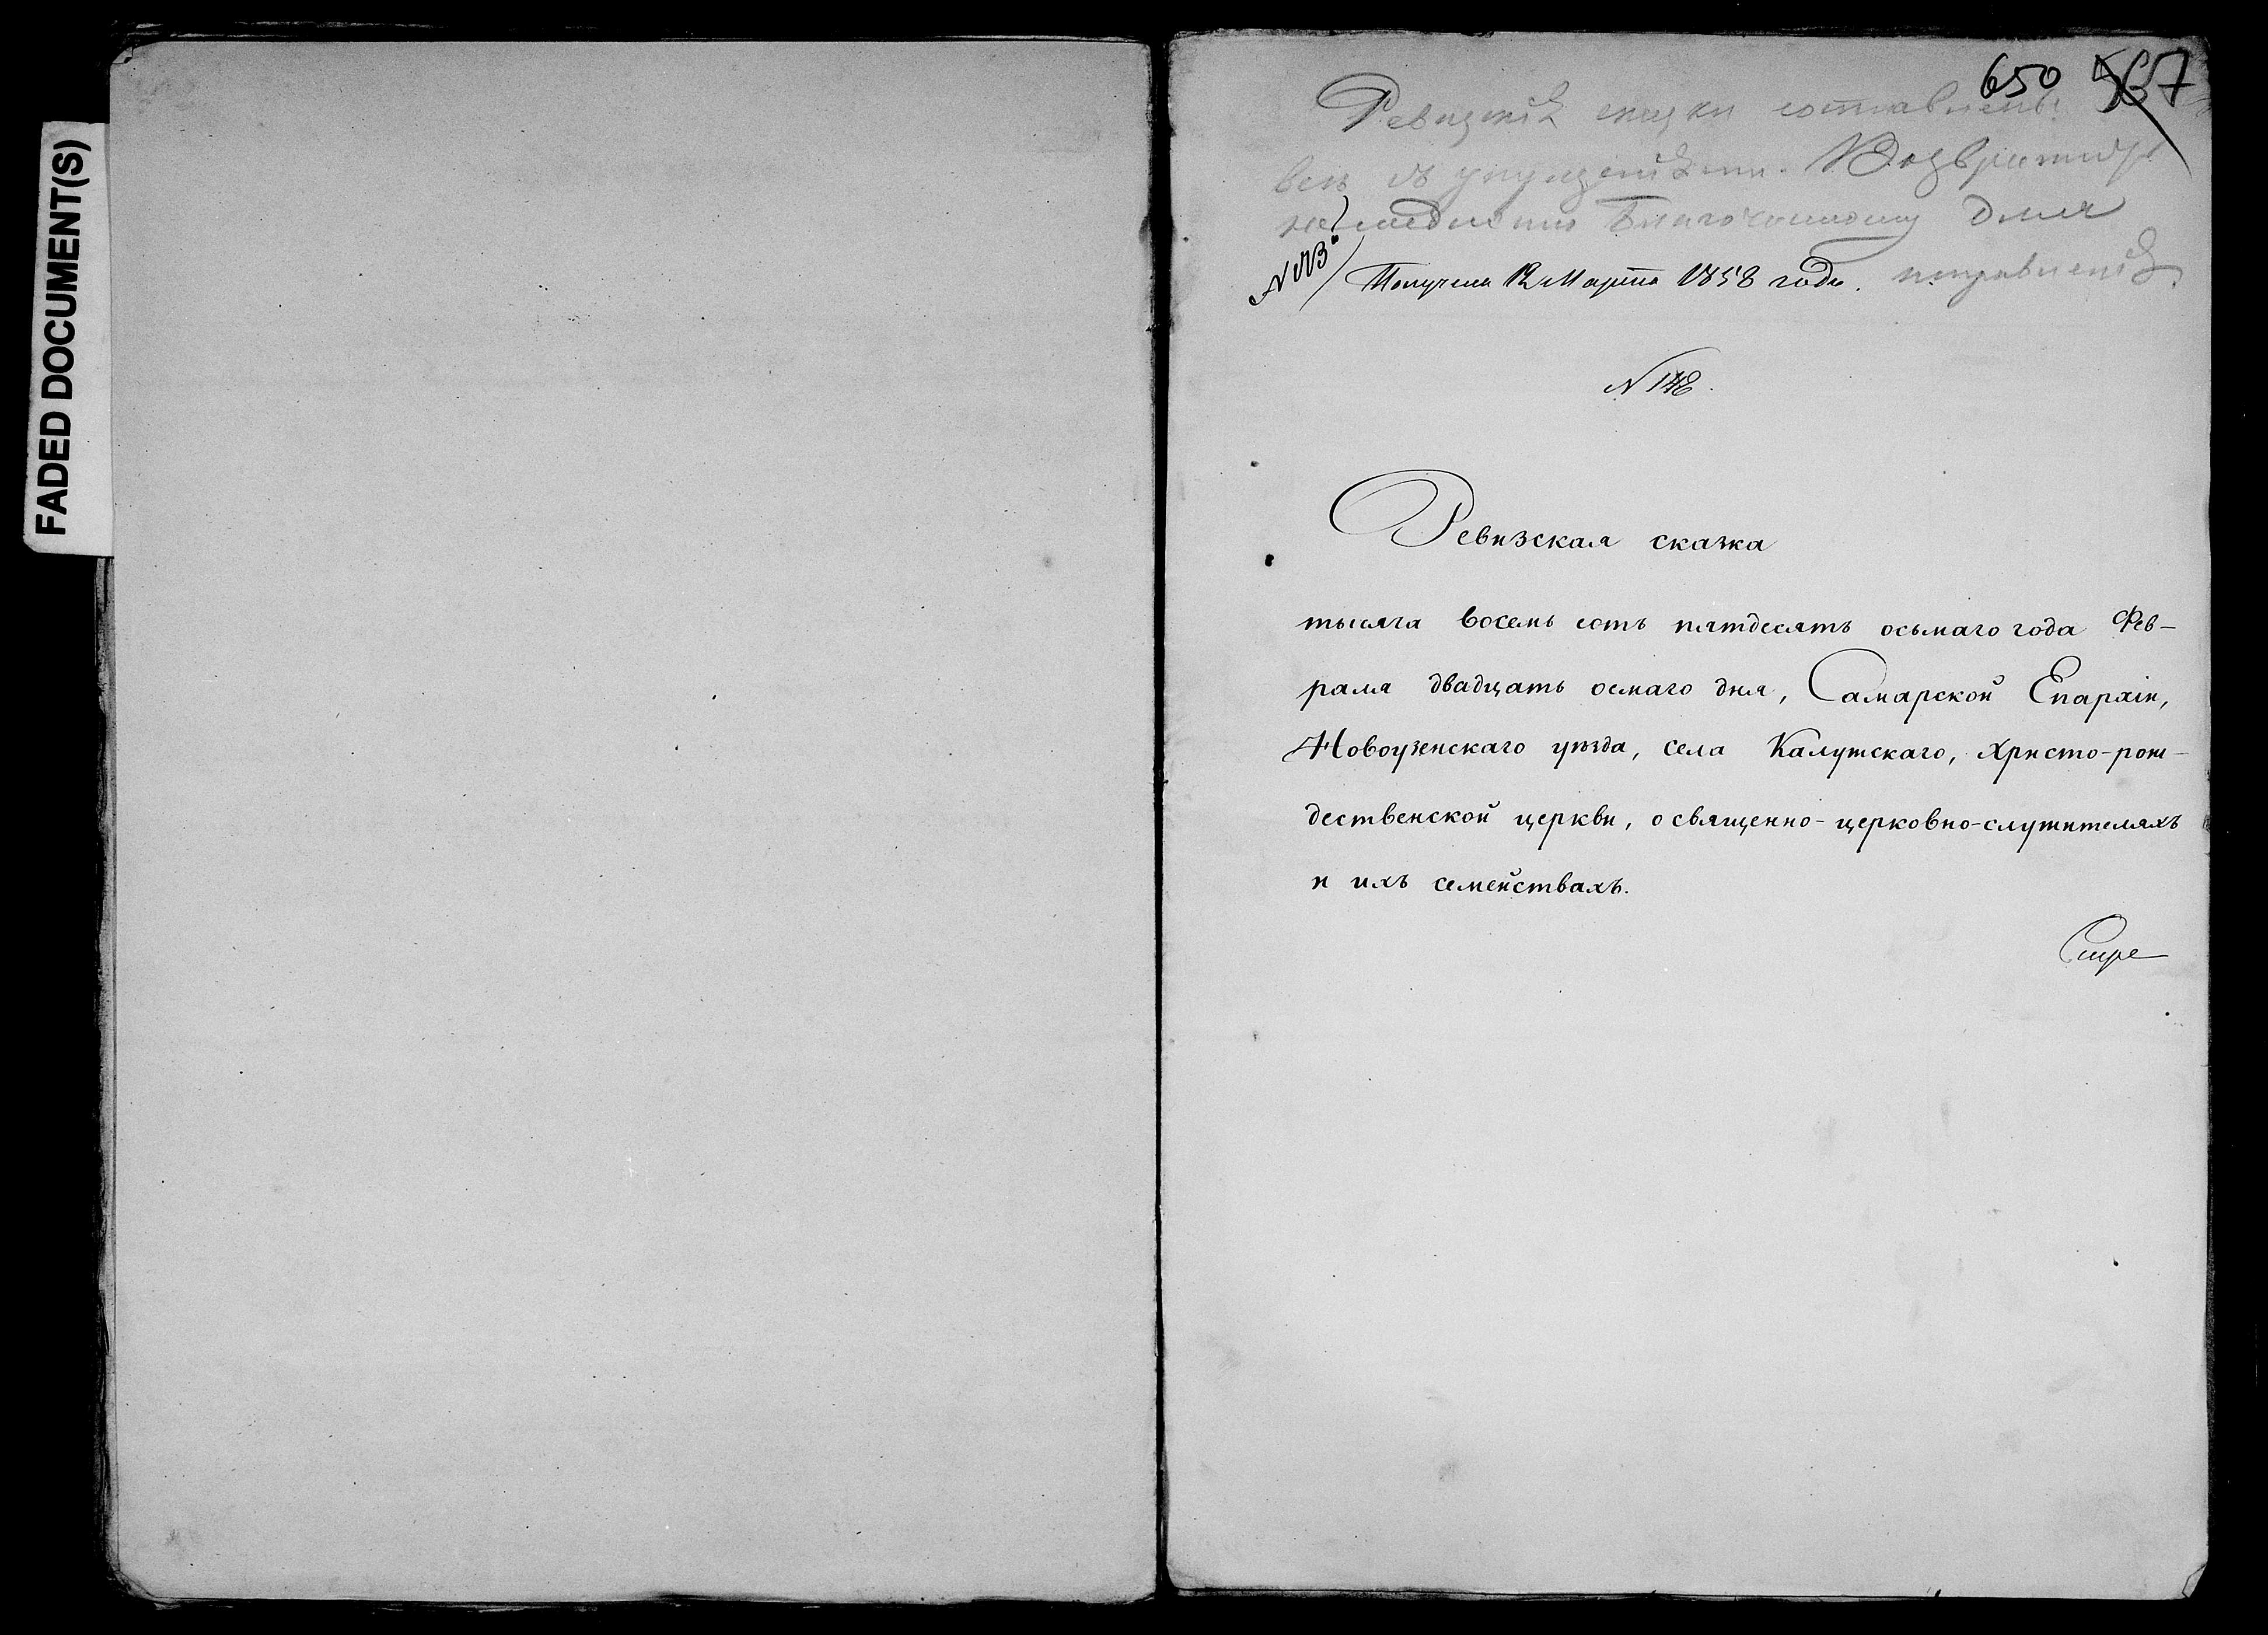 FADED DOCUMENT(S)
650 567
Ревизскія сказки составлены
всѣ съ упущеніями. Возвратить
немедленно Благочинному для
исправленія.
Получена 12 Марта 1858 года.
N 148.
Ревизская сказка
тысяча восемь сотъ пятдесятъ осьмаго года Фев-
раля двадцать осмаго дня, Самарской Епархіи,
Новоузенскаго уѣзда, села Калужскаго, Христо-рож-
дественской церкви, о священно-церковно-служителяхъ
и ихъ семействахъ.